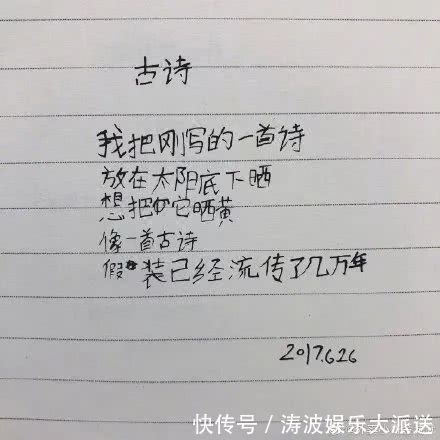 古诗
我把刚写的一首诗
放在太阳底下晒
想把它晒黄
像一首古诗
假装已经流传了几万年
2017.6.26
快传号／涛波娱乐大派送